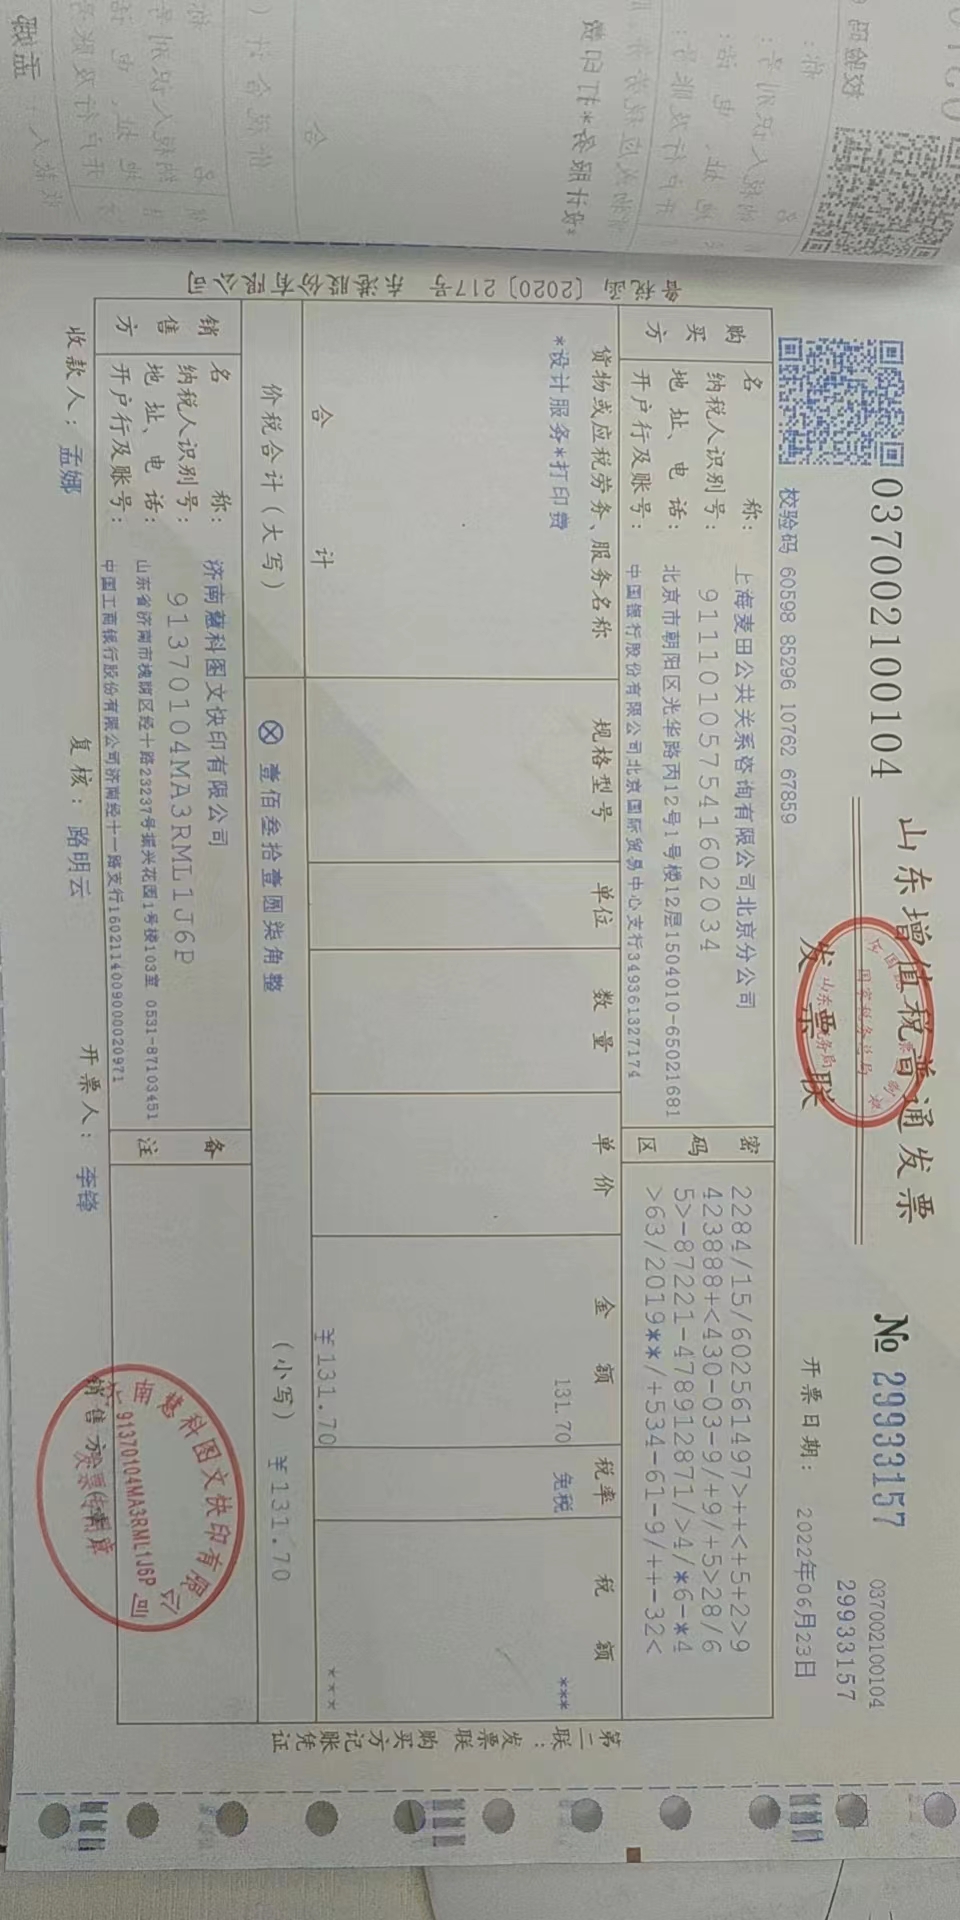 037002100104
山东增值税普通发票
发票联
№ 29933157
037002100104
29933157
校验码 60598 85296 10762 67859
开票日期: 2022年06月23日
购买方
名称: 上海麦田公共关系咨询有限公司北京分公司
纳税人识别号: 911101057541602034
地址、电话: 北京市朝阳区光华路丙12号1号楼12层1504010-65021681
开户行及账号: 中国银行股份有限公司北京国际贸易中心支行349361327174
密码区
2284/15/602561497>++<+5+2>9
423888+<430-03-9/+9/+5>28/6
5>-87221-478912871/>4/*6-*4
>63/2019**/+534-61-9/++-32<
货物或应税劳务、服务名称 规格型号 单位 数量 单价 金额 税率 税额
*设计服务*打印费 131.70 免税 ***
合计 ¥131.70 ***
价税合计(大写) ⊗壹佰叁拾壹圆柒角整 (小写) ¥131.70
销售方
名称: 济南慧科图文快印有限公司
纳税人识别号: 91370104MA3RML1J6P
地址、电话: 山东省济南市槐荫区经十路23237号振兴花园1号楼103室 0531-87103451
开户行及账号: 中国工商银行股份有限公司济南经十一路支行1602114009000020971
备注
收款人: 孟娜
复核: 路明云
开票人: 李锋
销售方:(章)
济南慧科图文快印有限公司
91370104MA3RML1J6P
发票专用章
国家税务总局
第二联:发票联 购买方记账凭证
鲁税函〔2020〕217号 东港股份有限公司